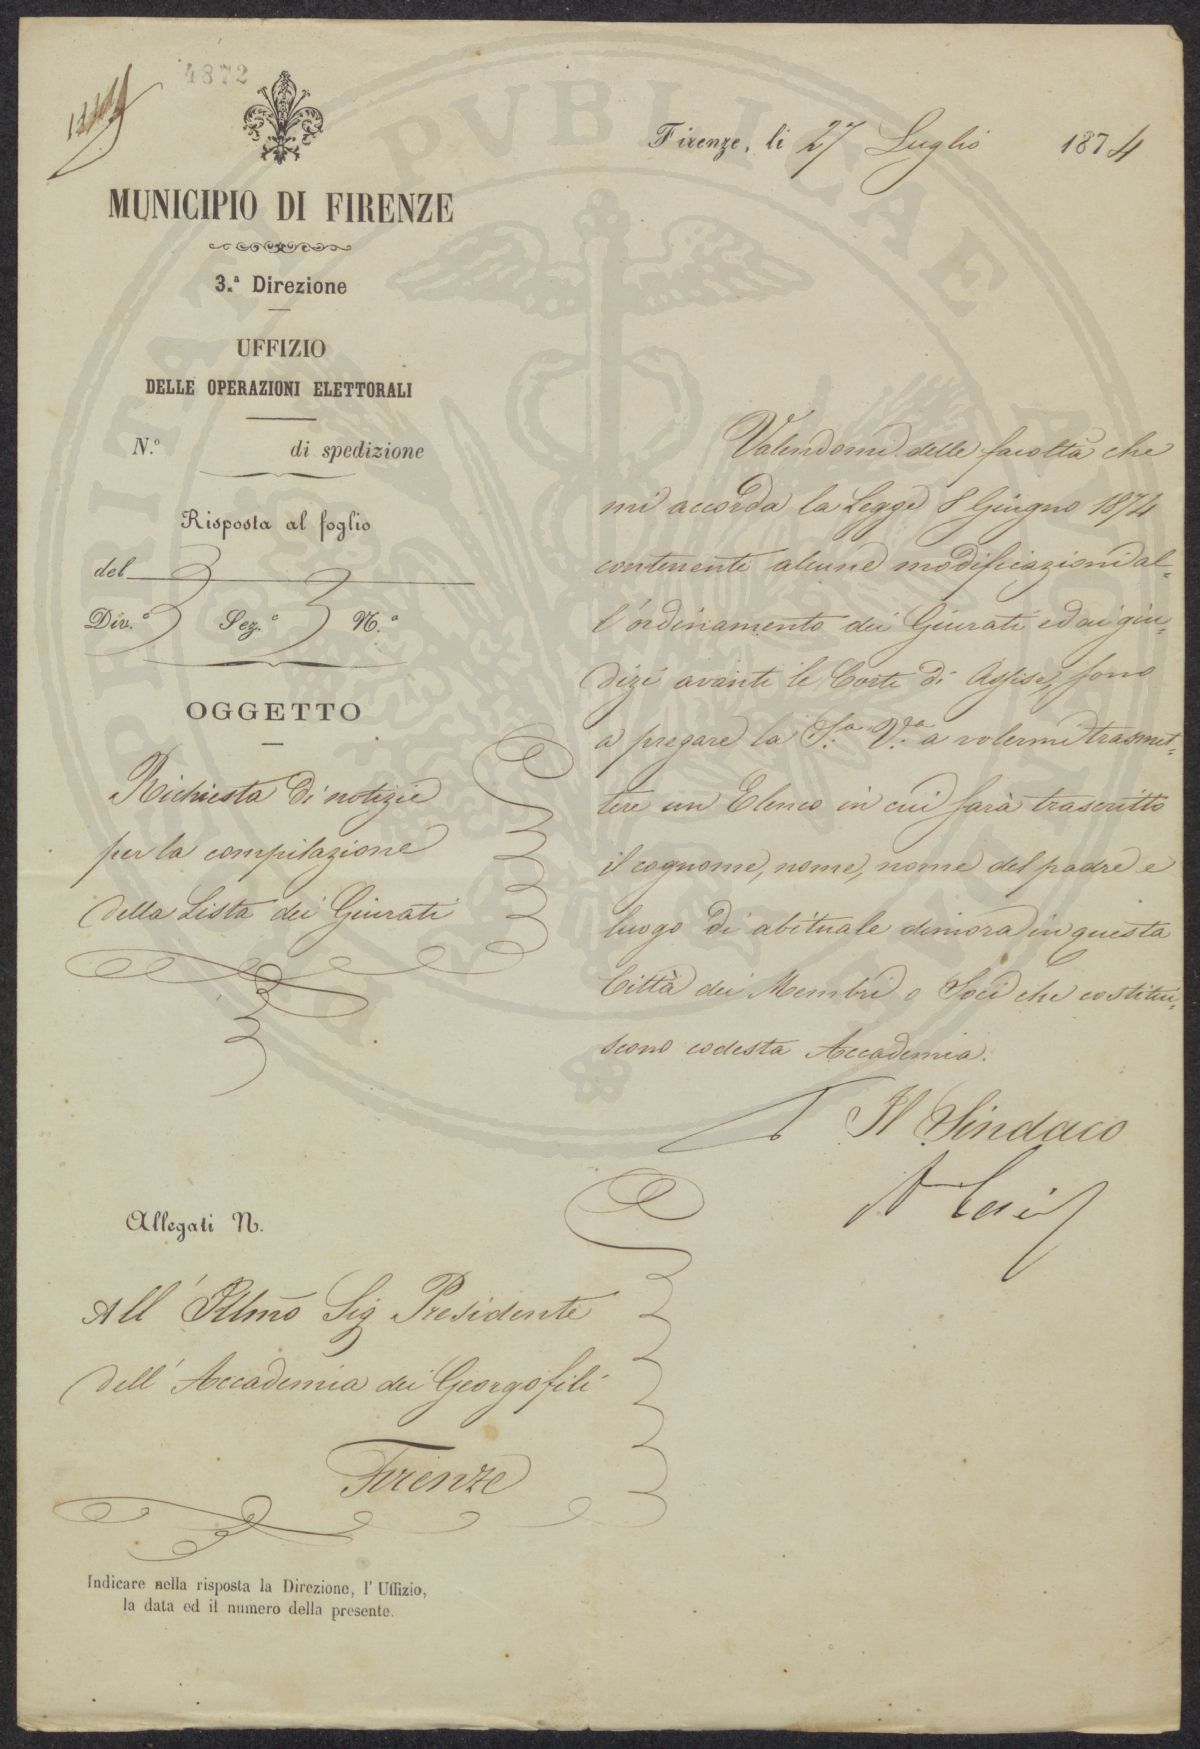 4872
MUNICIPIO DI FIRENZE
3.ª Direzione
UFFIZIO
DELLE OPERAZIONI ELETTORALI
N.º di spedizione
Risposta al foglio
del
Div.º Sez.º N.º
OGGETTO
Richiesta di notizie
per la compilazione
della Lista dei Giurati
Firenze, li 27 Luglio 1874
Valendomi delle facoltà che
mi accorda la Legge 8 Giugno 1874
contenente alcune modificazioni al-
l'ordinamento dei Giurati ed ai giu-
dizi avanti le Corti di Assise, sono
a pregare la S.ª V.ª a volermi trasmet-
tere un Elenco in cui sarà trascritto
il cognome, nome, nome del padre e
luogo di abituale dimora in questa
Città dei Membri o Soci che costitui-
scono codesta Accademia.
Il Sindaco
Allegati N.
All' Illmo Sig Presidente
dell' Accademia dei Georgofili
Firenze
Indicare nella risposta la Direzione, l' Uffizio,
la data ed il numero della presente.